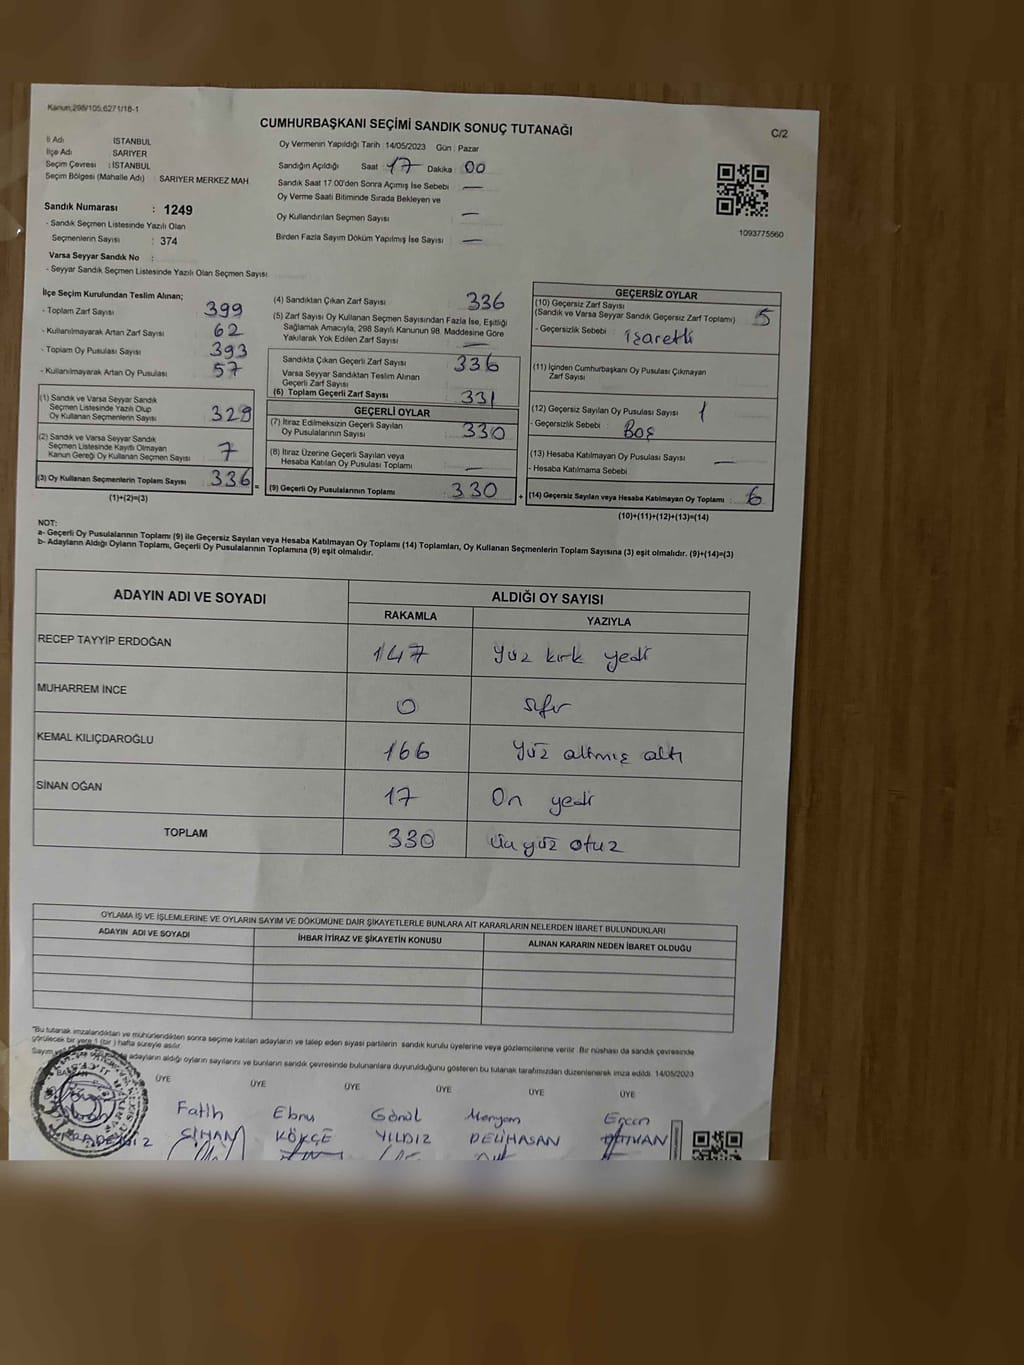 Kanun;298/105;6271/16-1
CUMHURBAŞKANI SEÇİMİ SANDIK SONUÇ TUTANAĞI
C/2
İl Adı İSTANBUL
İlçe Adı SARIYER
Seçim Çevresi : İSTANBUL
Seçim Bölgesi (Mahalle Adı) SARIYER MERKEZ MAH
Sandık Numarası : 1249
- Sandık Seçmen Listesinde Yazılı Olan
Seçmenlerin Sayısı : 374
Varsa Seyyar Sandık No :
- Seyyar Sandık Seçmen Listesinde Yazılı Olan Seçmen Sayısı
Oy Vermenin Yapıldığı Tarih : 14/05/2023 Gün : Pazar
Sandığın Açıldığı Saat : 17 Dakika : 00
Sandık Saat 17:00'den Sonra Açımış İse Sebebi : —
Oy Verme Saati Bitiminde Sırada Bekleyen ve
Oy Kullandırılan Seçmen Sayısı : —
Birden Fazla Sayım Döküm Yapılmış İse Sayısı : —
1093775560
İlçe Seçim Kurulundan Teslim Alınan;
- Toplam Zarf Sayısı : 399
- Kullanılmayarak Artan Zarf Sayısı : 62
- Toplam Oy Pusulası Sayısı : 393
- Kullanılmayarak Artan Oy Pusulası : 57
(1) Sandık ve Varsa Seyyar Sandık
Seçmen Listesinde Yazılı Olup
Oy Kullanan Seçmenlerin Sayısı : 329
(2) Sandık ve Varsa Seyyar Sandık
Seçmen Listesinde Kayıtlı Olmayan
Kanun Gereği Oy Kullanan Seçmen Sayısı : 7
(3) Oy Kullanan Seçmenlerin Toplam Sayısı : 336
(1)+(2)=(3)
(4) Sandıktan Çıkan Zarf Sayısı : 336
(5) Zarf Sayısı Oy Kullanan Seçmen Sayısından Fazla İse, Eşitliği
Sağlamak Amacıyla, 298 Sayılı Kanunun 98. Maddesine Göre
Yakılarak Yok Edilen Zarf Sayısı : —
Sandıkta Çıkan Geçerli Zarf Sayısı : 336
Varsa Seyyar Sandıktan Teslim Alınan
Geçerli Zarf Sayısı :
(6) Toplam Geçerli Zarf Sayısı : 331
GEÇERLİ OYLAR
(7) İtiraz Edilmeksizin Geçerli Sayılan
Oy Pusulalarının Sayısı : 330
(8) İtiraz Üzerine Geçerli Sayılan veya
Hesaba Katılan Oy Pusulası Toplamı : —
= (9) Geçerli Oy Pusulalarının Toplamı : 330
GEÇERSİZ OYLAR
(10) Geçersiz Zarf Sayısı
(Sandık ve Varsa Seyyar Sandık Geçersiz Zarf Toplamı) : 5
- Geçersizlik Sebebi : işaretli
(11) İçinden Cumhurbaşkanı Oy Pusulası Çıkmayan
Zarf Sayısı
(12) Geçersiz Sayılan Oy Pusulası Sayısı : 1
- Geçersizlik Sebebi : Boş
(13) Hesaba Katılmayan Oy Pusulası Sayısı : —
- Hesaba Katılmama Sebebi :
+ (14) Geçersiz Sayılan veya Hesaba Katılmayan Oy Toplamı : 6
(10)+(11)+(12)+(13)=(14)
NOT:
a- Geçerli Oy Pusulalarının Toplamı (9) ile Geçersiz Sayılan veya Hesaba Katılmayan Oy Toplamı (14) Toplamları, Oy Kullanan Seçmenlerin Toplam Sayısına (3) eşit olmalıdır. (9)+(14)=(3)
b- Adayların Aldığı Oyların Toplamı, Geçerli Oy Pusulalarının Toplamına (9) eşit olmalıdır.
ADAYIN ADI VE SOYADI ALDIĞI OY SAYISI
RAKAMLA YAZIYLA
RECEP TAYYİP ERDOĞAN 147 Yüz kırk yedi
MUHARREM İNCE 0 sıfır
KEMAL KILIÇDAROĞLU 166 Yüz altmış altı
SİNAN OĞAN 17 On yedi
TOPLAM 330 Üçyüz otuz
OYLAMA İŞ VE İŞLEMLERİNE VE OYLARIN SAYIM VE DÖKÜMÜNE DAİR ŞİKAYETLERLE BUNLARA AİT KARARLARIN NELERDEN İBARET BULUNDUKLARI
ADAYIN ADI VE SOYADI İHBAR İTİRAZ VE ŞİKAYETİN KONUSU ALINAN KARARIN NEDEN İBARET OLDUĞU
"Bu tutanak imzalandıktan ve mühürlendikten sonra seçime katılan adayların ve talep eden siyasi partilerin sandık kurulu üyelerine veya gözlemcilerine verilir. Bir nüshası da sandık çevresinde
görülecek bir yere 1 (bir ) hafta süreyle asılır.
Sayım adayların aldığı oyların sayılarını ve bunların sandık çevresinde bulunanlara duyurulduğunu gösteren bu tutanak tarafımızdan düzenlenerek imza edildi. 14/05/2023
ÜYE ÜYE ÜYE ÜYE ÜYE ÜYE
Fatih Ebru Gönül Meryem Ercan
KARADENİZ SİHAN KÖKÇE YILDIZ DELİHASAN